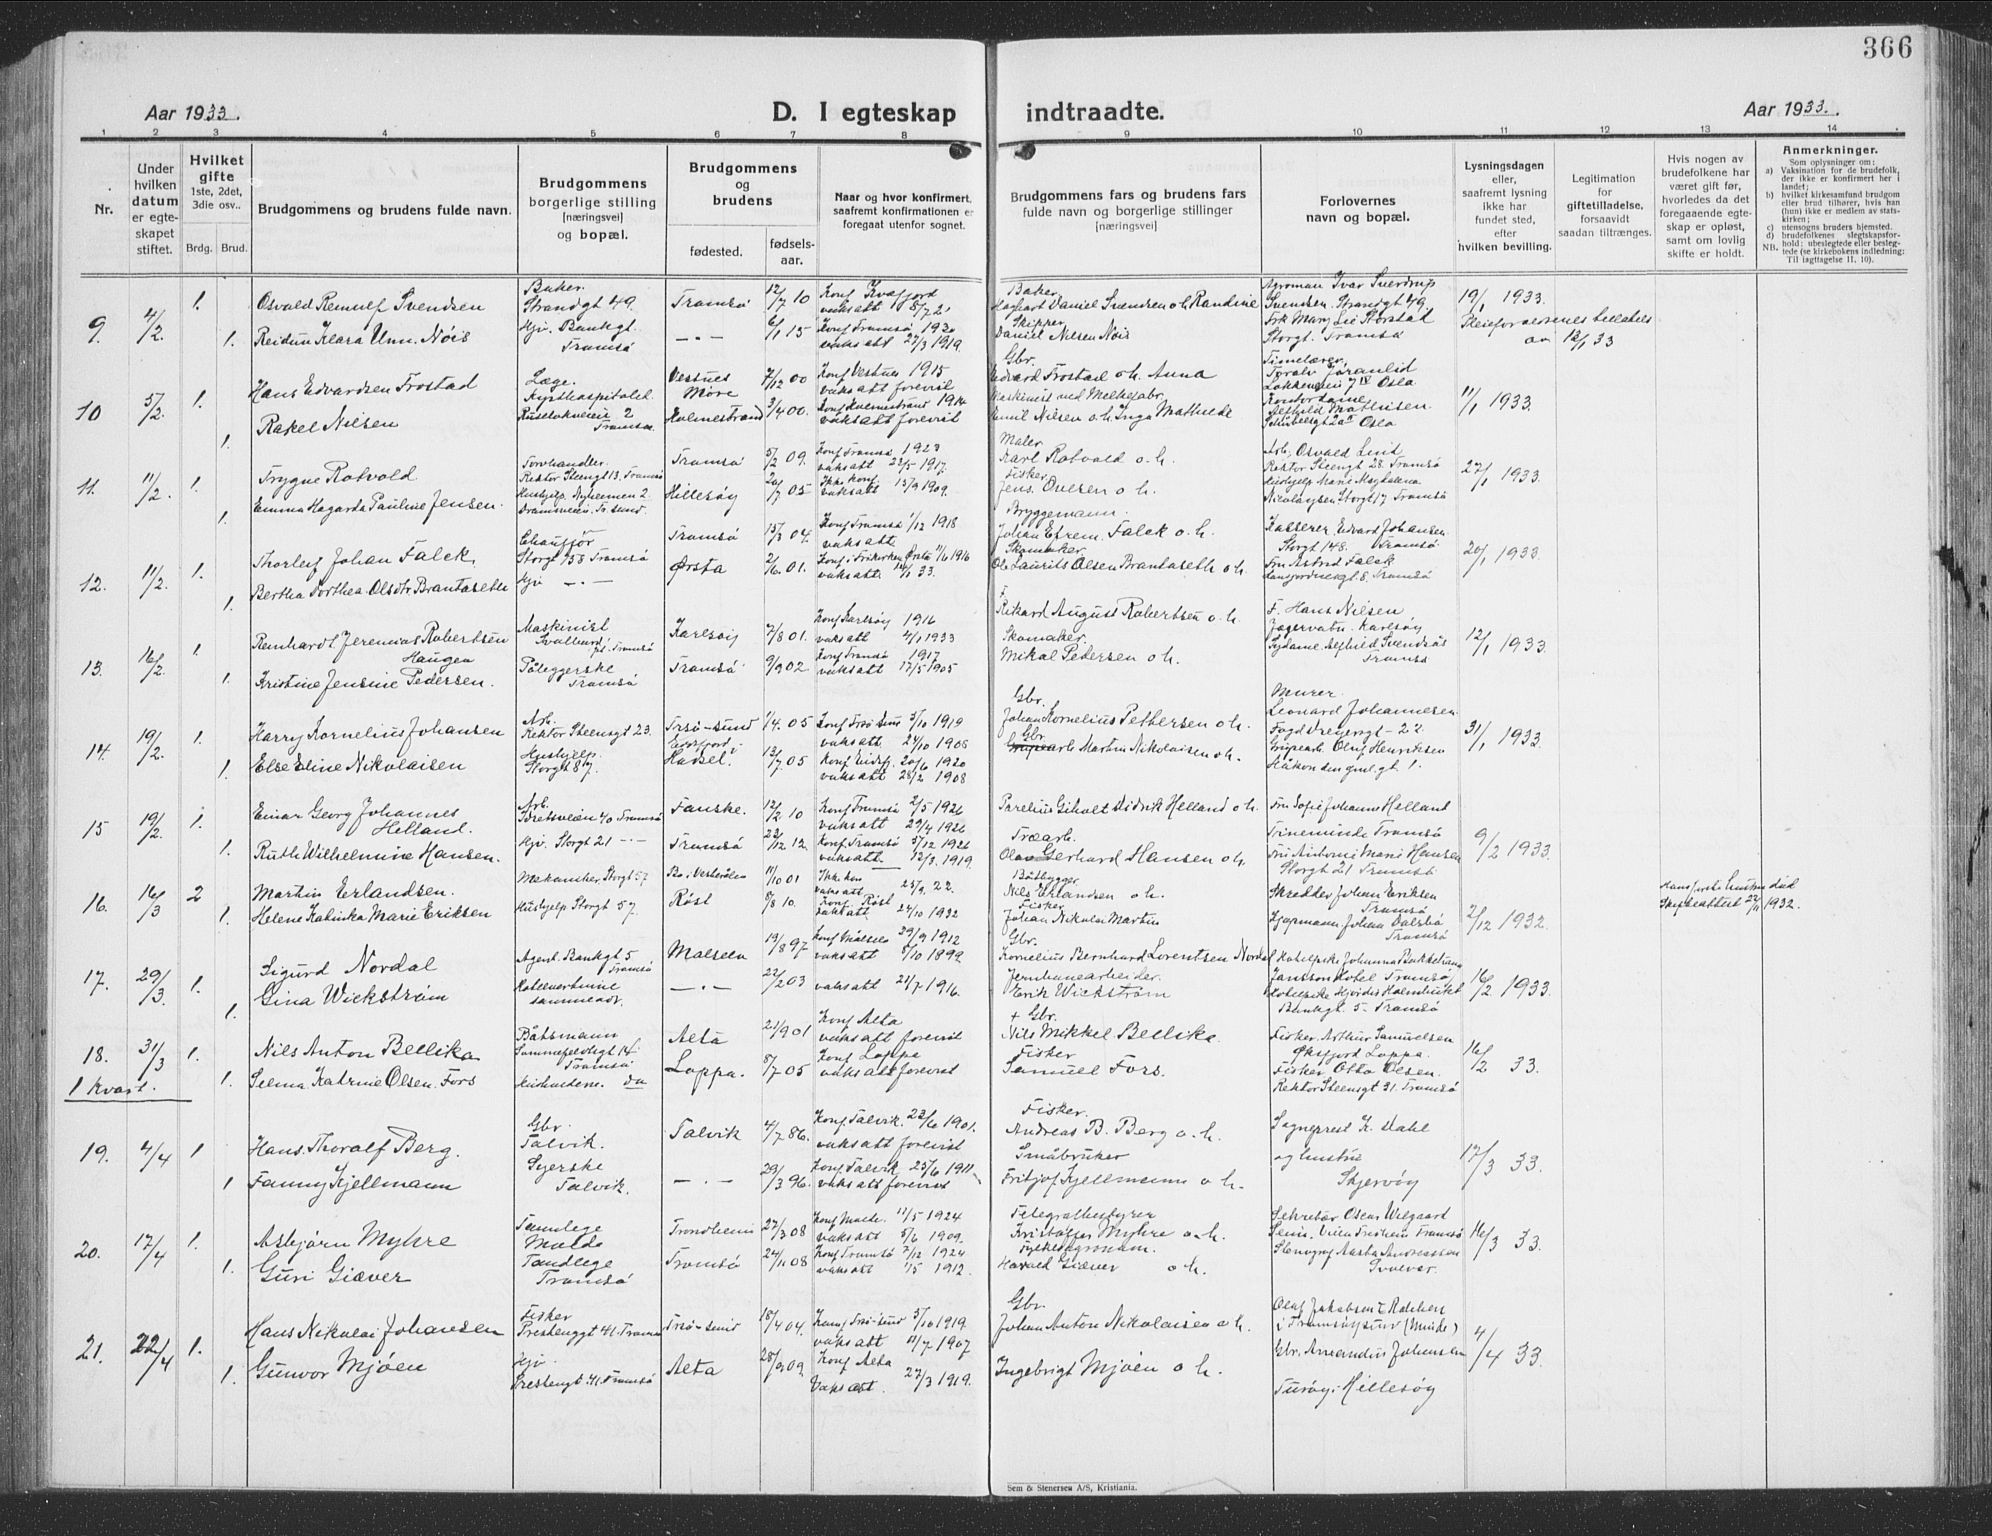 366
Aar 1933.
D. I egteskap indtraadte.
Aar 1933.
1 2 3 4 5 6 7 8 9 10 11 12 13 14
Nr.
Under hvilken datum er egteskapet stiftet.
Hvilket gifte
1ste, 2det, 3die osv..
Brdg. Brud.
Brudgommens og brudens fulde navn.
Brudgommens borgerlige stilling [næringsvei] og bopæl.
Brudgommens og brudens
fødested. fødselsaar.
Naar og hvor konfirmert, saafremt konfirmationen er foregaat utenfor sognet.
Brudgommens fars og brudens fars fulde navn og borgerlige stillinger [næringsvei]
Forlovernes navn og bopæl.
Lysningsdagen eller, saafremt lysning ikke har fundet sted, efter hvilken bevilling.
Legitimation for giftetilladelse, forsaavidt saadan tiltrænges.
Hvis nogen av brudefolkene har været gift før, hvorledes da det foregaaende egteskap er opløst, samt om lovlig skifte er holdt.
Anmerkninger.
Som oplysninger om:
a) Vaksination for de brudefolk, der ikke er konfirmert her i landet;
b) hvilket kirkesamfund brudgom eller brud tilhører, hvis han (hun) ikke er medlem av statskirken;
c) utensogns bruders hjemsted.
d) brudefolkenes slegtskapsforhold: ubeslegtede eller beslegtede (se kirkebokens indledning: NB. Til iagttagelse II, 10).
9. 4/2. 1. Osvald Svendsen Baker. Strandgt 49. Tromsø 12/7 10 Konf Kvæfjord vaksatt
Baker Daniel Svendsen o.h. Randine Agronom Ivar Sverdrup Svendsen. Strandgt 49. 19/1 1933.
1. Reidun Klara Unn. Nøis Hjv. Bankgt. Tromsø — . — 6/1 15 Konf Tromsø 1930 vaksatt 27/3 1919.
Skipper Daniel Nilsen Nøis Frk Mary Lie Storstad Storgt. Tromsø
10 5/2. 1. Hans Edvardsen Frostad Læge. Vestnes Møre 7/12 00 Konf Vestnes 1915 vaksatt forevist
Gbr. Edvard Frostad o.h. Anna Timelærer Oslo 11/1 1933.
1. Rakel Nilsen Tromsø Holmestrand 3/4 00. Konf Holmestrand 1914 vaksatt forevist
Emil Nilsen o.h. Inga Mathilde Kontordame Mathisen. Oslo
11. 11/2. 1. Trygve Rotvold Torvhandler. Rektor Steengt 13. Tromsø Tromsø 5/2 09. Konf Tromsø 1923 vaksatt 22/5 1917.
Maler Karl Rotvold o.h. Arb. Osvald Lind Rektor Steengt 28. Tromsø 27/1 1933.
1. Emma Hagarda Pauline Jensen. Hushjelp. Hillesøy 20/7 05 Ikke konf. vaksatt 13/9 1909.
Fisker Jens Ovesen o.h. Hushjelp Marie Magdalena Nicolaysen Storgt 17 Tromsø
12. 11/2. 1. Thorleif Johan Falck. Chauffør Storgt 158 Tromsø Tromsø 15/3 04. Konf Tromsø 1/12 1918 vaksatt
Bryggemann. Johan Efrem. Falck o.h. Kasserer Edvard Johansen Storgt 148. Tromsø 20/1 1933.
1. Bertha Dorthea Olsdtr. Brautaseth Hjv — . — Ørsta 2/6 01. Konf i Frikirken Ørsta 1916 vaksatt
Skomaker Laurits Olsen Brautaseth o.h. Fru Astrid Falck Tromsø
13. 16/2. 1. Reinhardt Jeremias Robertsen Haugen Maskinist Tromsø Karlsøy 7/8 01. Konf Karlsøy 1916 vaksatt 4/1 1933
F. Rikard August Robertsen o.h. F. Hans Nilsen Karlsøy 12/1 1933.
1. Kristine Jensine Pedersen. Påleggerske Tromsø Tromsø 9/9 02 Konf Tromsø 1917 vaksatt 12/5 1905
Skomaker. Mikal Pedersen o.h. Sydame Alfhild Tromsø
14. 19/2. 1. Harry Kornelius Johansen Arb. Rektor Steensgt 23. Trsø-sund 1/4. 05 Konf Trsø-sund 5/10 1919 vaksatt 24/10 1908
Gbr. Johan Kornelius Pettersen o.h. Murer. Leonard Johannesen. 31/1 1933.
1. Else Eline Nikolaisen Hushjelp. Storgt 87. Hadsel. 13/7 05 vaksatt 28/2 1908
Gbr. Martin Nikolaisen o.h. Grubearb Oluf Henriksen
15 19/2. 1. Einar Georg Johannes Helland. Arb. Tromsø Fauske. 12/2 10 Konf Tromsø 2/5 1926 vaksatt 29/4 1926
Didrik Helland o.h. Fru Sofie Johanne Helland Tromsø 9/2 1933.
1. Ruth Wilhelmine Hansen. Hjv. Storgt 21 — Tromsø 22/12 12. Konf. Tromsø 5/12 1926 vaksatt. 12/3 1919.
Træarb. Gerhard Hansen o.h. Fru Antonie Marie Hansen Storgt 21 Tromsø
16. 16/3 2 Martin Erlandsen. Mekaniker. Storgt 57 Bø i Vesterålen 11/10 01 Ikke kon vaksatt 25/9. 22.
Båtbygger Nils Erlandsen o.h. Skredder Johan Eriksen Tromsø 2/12 1932.
Hans første hustru død Skifteattest 22/11 1932.
1. Helene Katinka Marie Eriksen Hushjelp Storgt 57. Røst 8/8 10. Konf. Røst vaksatt 24/10 1932
Fisker Johan Nikolai Martin Kjøpmann Johan Tromsø
17. 29/3. 1. Sigurd Nordal Agent. Bankgt 5 Tromsø Målselv 19/8 97 Konf Målselv 29/9 1912 vaksatt 8/10 1899.
Gbr. Kornelius Bernhard Lorentsen Nordal Johanna 16/2 1933.
1. Gina Wickstrøm sammested. — . — 22/2 03 vaksatt 21/7 1916.
Jernbanearbeider. Erik Wickstrøm Bankgt. 5 - Tromsø
18. 31/3 1. Nils Anton Bellika Båtsmann Sommerfeldtsgt 14. Tromsø Alta 21/9 01 Konf Alta vaksatt forevist
+ Gbr. Nils Mikkel Bellika. Fisker. Arthur Samuelsen Øksfjord Loppa. 16/2 33.
1 kvart. 1. Selma Katrine Olsen. Fors do Loppa. 8/7 05 Konf Loppa vaksatt forevist
Fisker Samuel Fors. Fisker Otto Olsen. Rektor Steensgt 31. Tromsø
19. 4/4 1 Hans. Thoralf Berg. Gbr. Talvik. Talvik 4/7 86. Konf Talvik. 23/6 1901. vaksatt forevist
Fisker. Andreas B. Berg o.h. Sogneprest K. Dahl og hustru Skjervøy 17/3 33.
1 Fanny Kjellmann Syerske Talvik. — . — 29/3 96. Konf Talvik 25/6 1911 vaksatt forevist
Småbruker Fritjof Kjellmann o.h.
20. 17/4 1. Asbjørn Myhre Tannlege Molde Trondheim 27/3 08 Konf Molde. 11/5 1924 vaksatt 5/6 1909.
Telegrafbestyrer Kristoffer Myhre o.h. Sekretær Oscar Wilgaard Tromsø 16/3 33.
1. Guri Giæver Tandlege Tromsø Tromsø 24/11 08 Konf Tromsø 7/12 1924 vaksatt 1/5 1912.
Fylkesagronom. Harald Giæver o.h. Stenograf Aasta Andreassen Svolvær.
21. 22/4 1. Hans Nikolai Johansen Fisker Prestenggt 41. Tromsø Trsø-sund 18/4 04. Konf Trsø-sund 5/10 1919. vaksatt 11/7 1907
Gbr. Johan Anton Nikolaisen o.h. Olaf Jakobsen i Tromsøysund (Minde) 4/4 33.
1. Gunvor Mjøen Hjv. Prestengt 41. Tromsø Alta 28/9 09. Konf Alta Vaksatt. 27/3 1919.
Ingebrigt Mjøen o.h. Gbr. Amandus Johansen Tussøy i Hillesøy
Sem & Stenersen A/S, Kristiania.